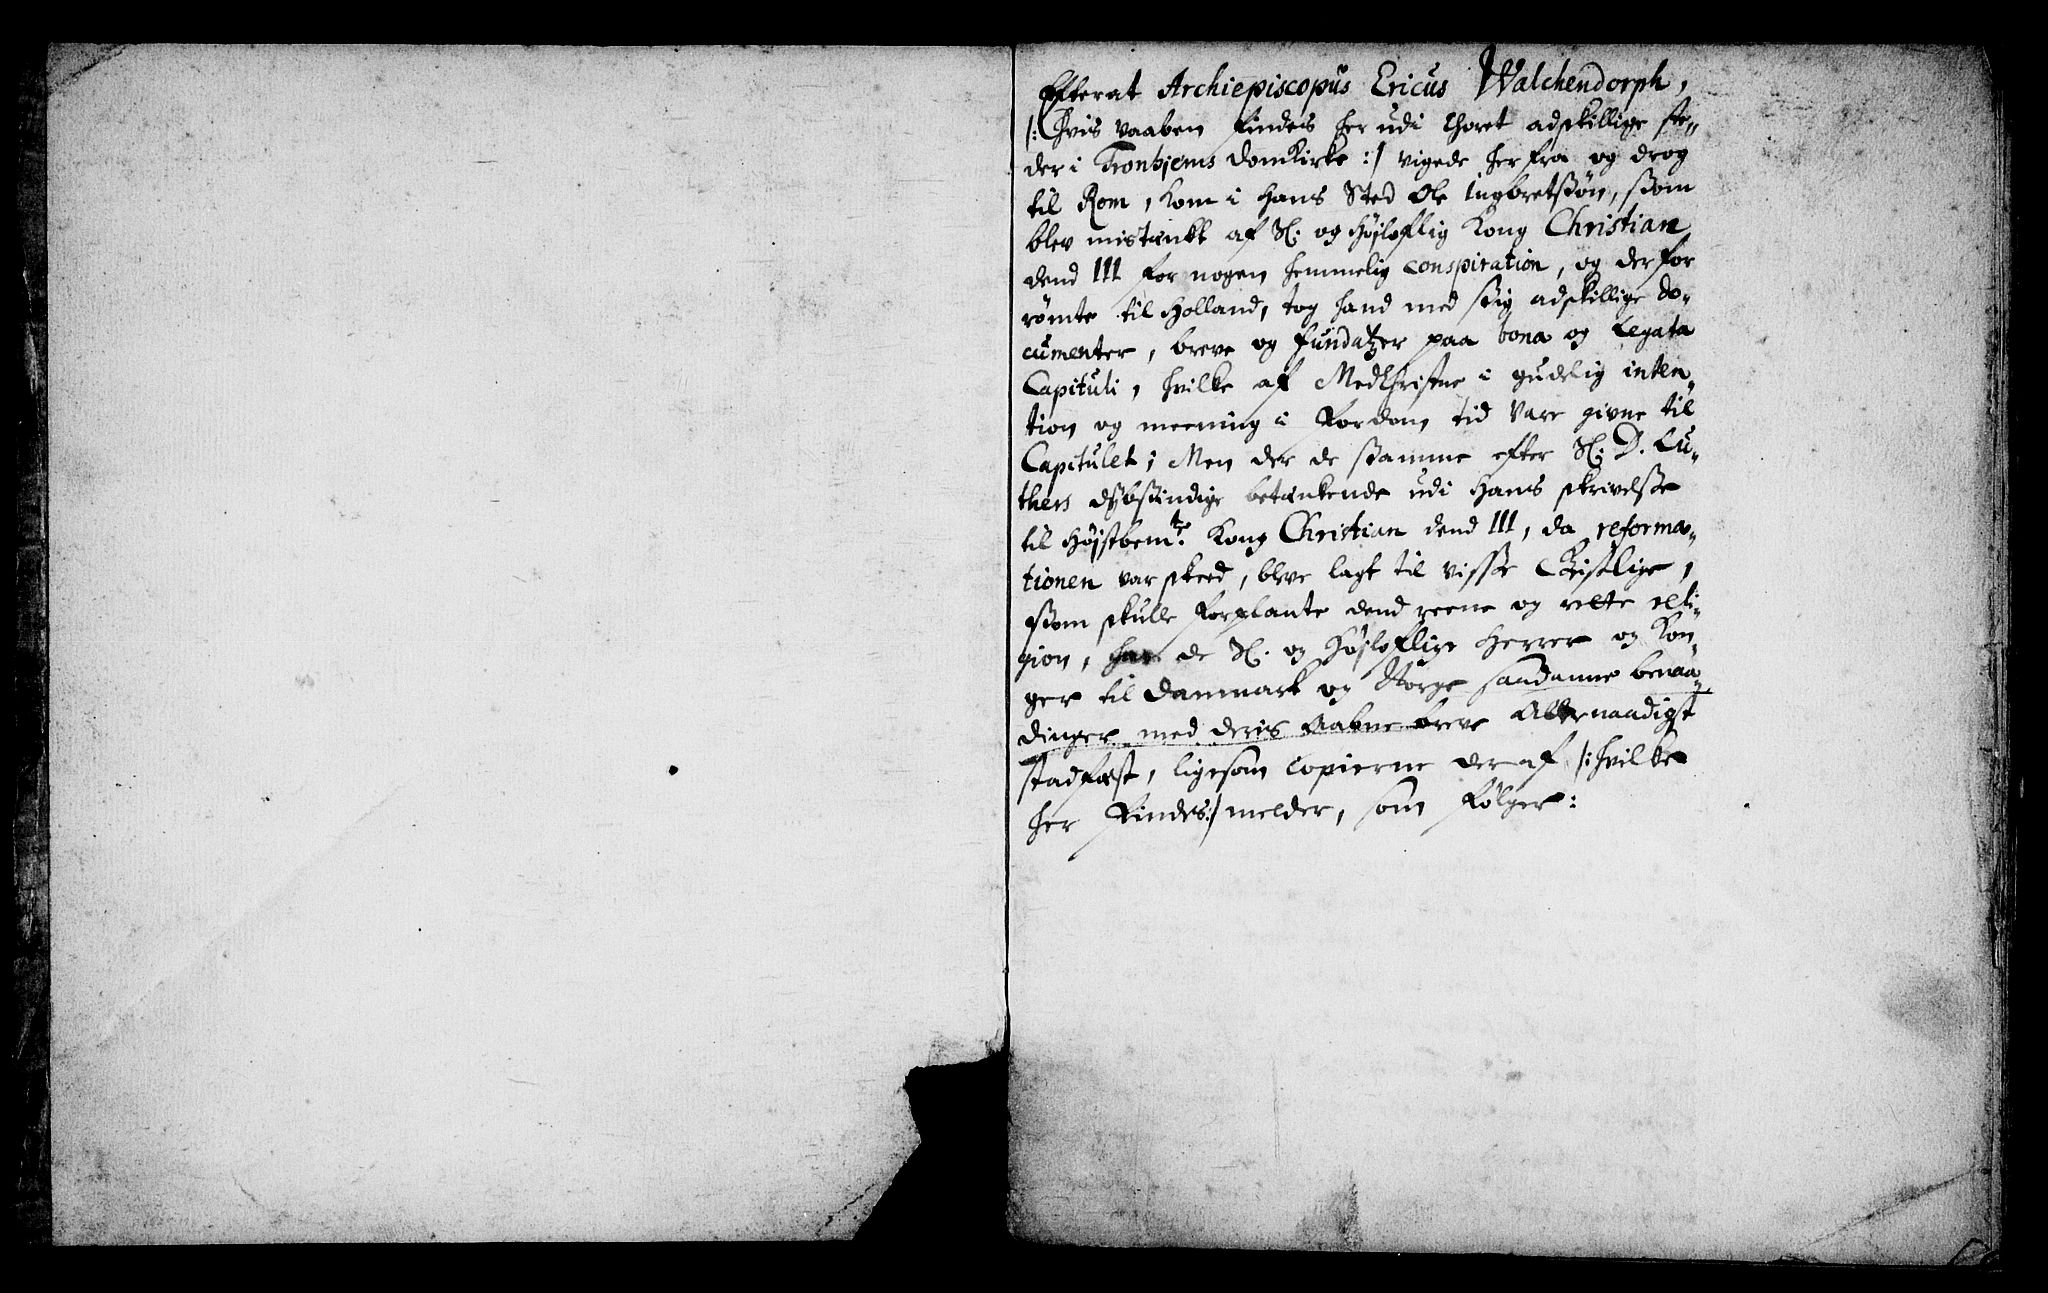 Efterat Archiepiscopus Ericus Walchendorph,
/: hvis vaaben findes her udi Choret adskillige ste-
der i Tronhjems domkirke :/ vigede her fra og drog
til Rom, kom i hans Sted Ole Ingbretsøn, som
blev mistænkt af Sl: og Højloflig Kong Christian
dend III for nogen hemmelig conspiration, og derfor
rømte til Holland, tog hand med sig adskillige do-
cumenter, breve og fundatzer paa bona og Legata
Capituli, hvilke af MedChristne i gudelig inten-
tion og meening i fordom tid vare givne til
Capitulet; Men der de samme efter Sl: D. Lu-
thers dybsindige betænkende udi hans skrivelse
til Højstbemte: Kong Christian dend III, da reforma-
tionen var skeed, bleve lagt til visse Geistlige,
som skulle forplante dend reene og rette reli-
gion, har de Sl. og Højloflige Herrer og Kon-
ger til Danmark og Norge saadanne benaa-
dinger med deris Aabne breve Allernaadigst
stadfæst, ligesom Copierne der af /: hvilke
her findes :/ melder, som følger: